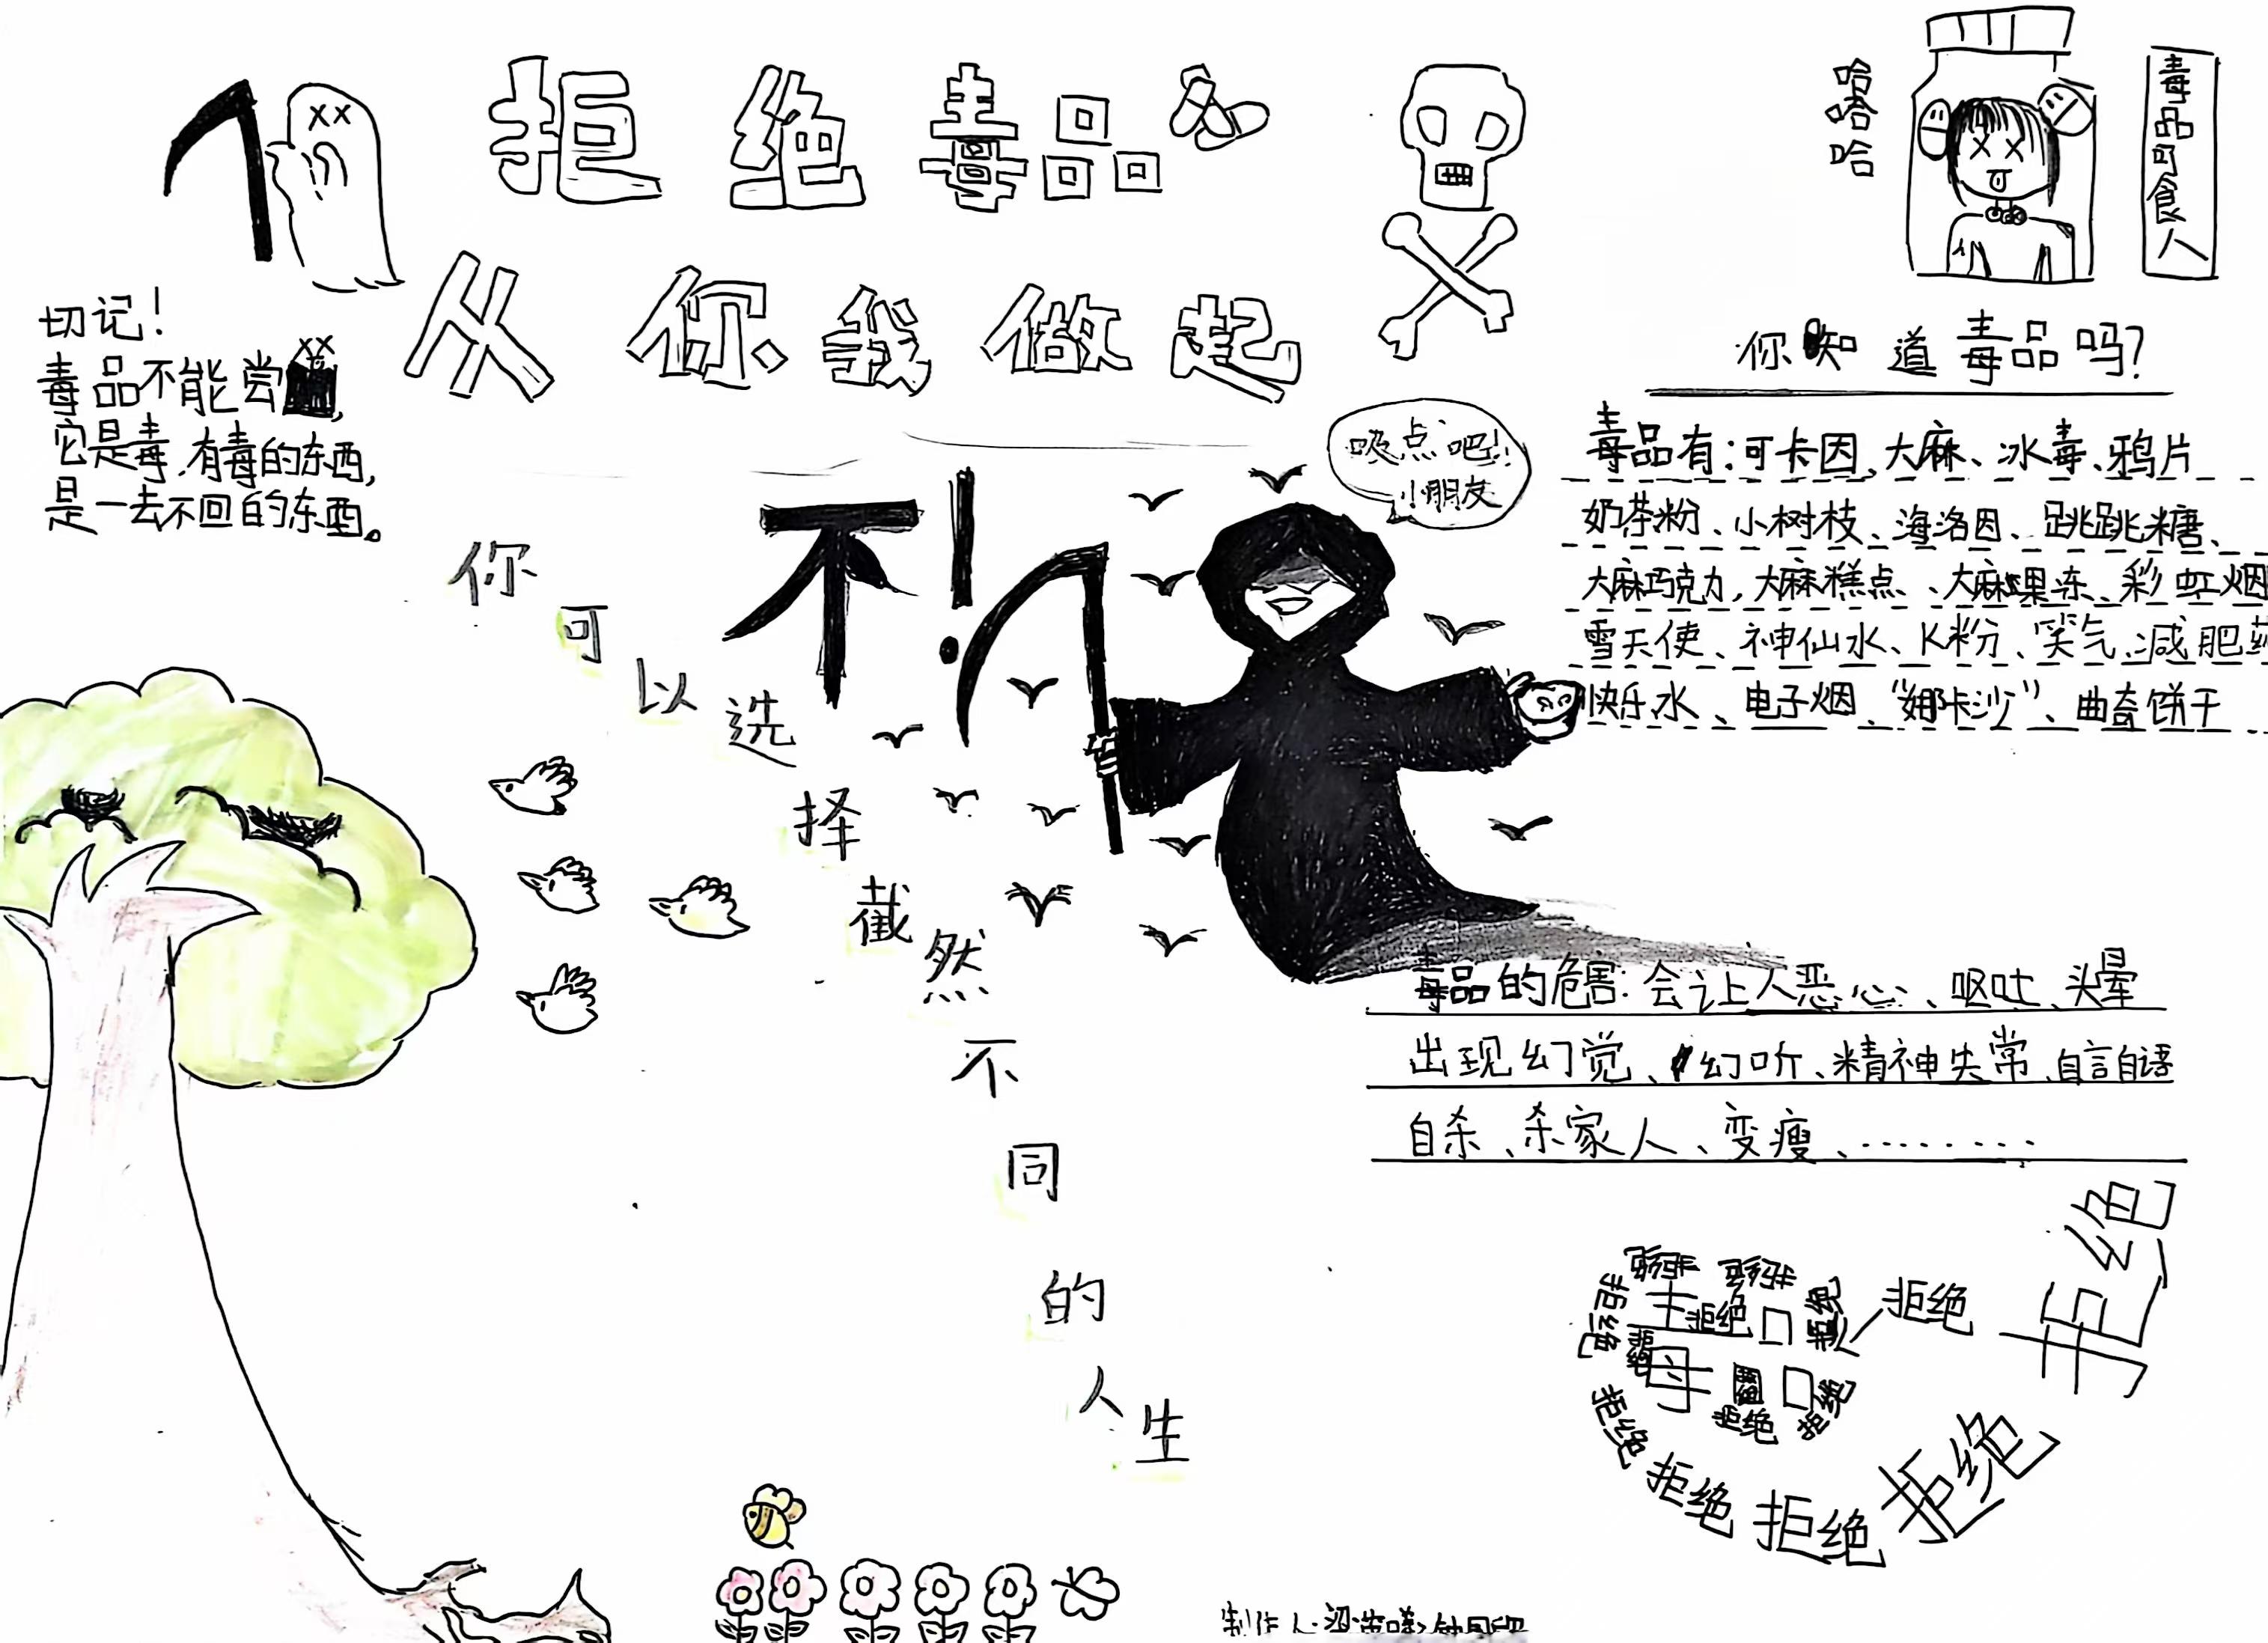 拒绝毒品
从你、我做起
哈哈哈
毒品可食人
切记！
毒品不能尝，
它是毒，有毒的东西，
是一去不回的东西。
你知道毒品吗？
毒品有：可卡因、大麻、冰毒、鸦片
奶茶粉、小树枝、海洛因、跳跳糖、
大麻巧克力，大麻糕点、大麻果冻、彩虹烟
雪天使、神仙水、K粉、笑气、减肥药
快乐水、电子烟、“娜卡沙”、曲奇饼干
吸点吧！！
小朋友
不！
你可以选择截然不同的人生
毒品的危害：会让人恶心、呕吐、头晕
出现幻觉、幻听、精神失常、自言自语
自杀、杀家人、变瘦、………
拒绝
拒绝
拒绝
拒绝
拒绝
拒绝
拒绝
拒绝
拒绝
拒绝
制作人：